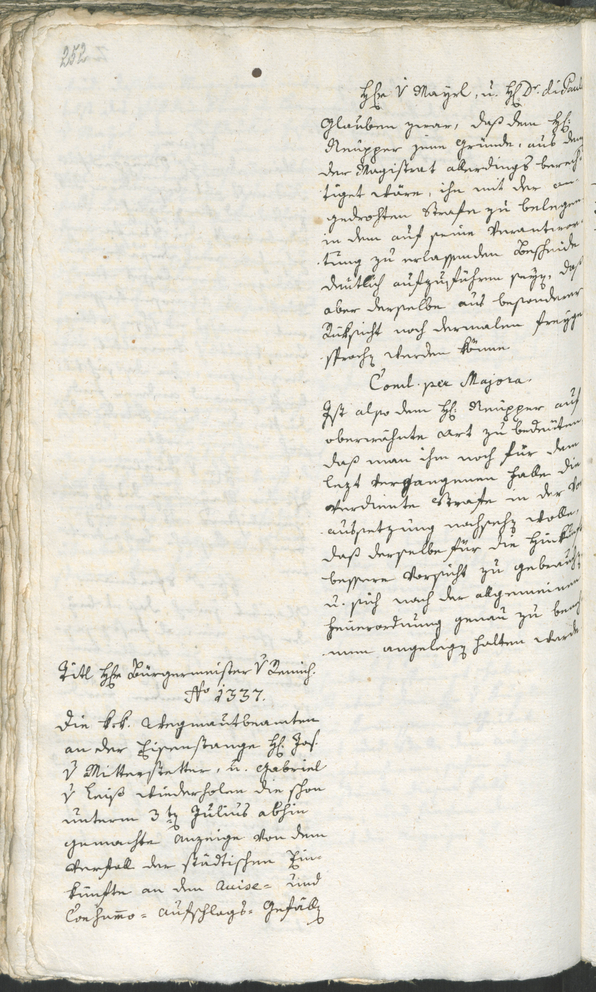 252
HHr v Mayrl, u. H: Dr. di Paul
glauben zwar, daß dem H:
Neupper jene Gründe, aus den
der Magistrat allerdings berech-
tiget wäre, ihn mit der an-
gedrohten Strafe zu belegen
in dem auf seine Verantwor-
tung zu erlassenden Bescheide
deutlich aufzuführen seyn, daß
aber derselbe aus besonderer
Rücksicht noch dermalen freyge
sproch werden könne.
Concl. per Majora.
Ist also dem H: Neupper auf
oberwähnte Art zu bedeuten
daß man ihm noch für dem
lezt vergangenen Falle die
verdiente Strafe in der Vor
aussetzung nachseh wolle,
daß derselbe für die Hinkunft
bessere Vorsicht zu gebrauch
u. sich nach der allgemeinen
Feuerordnung genau zu beneh
men angelegt halten werde
Titl HHr Bürgermeister v Remich.
No 1337.
Die k.k. Wegmautbeamten
an der Eisenstange H: Jos.
v Mitterstetter, u. Gabriel
v Leiß wiederholen die schon
unterm 3t Julius abhin
gemachte Anzeige von dem
Verfall der städtischen Ein-
künfte an dem Accise- und
Consumo- Aufschlags- Gefäll